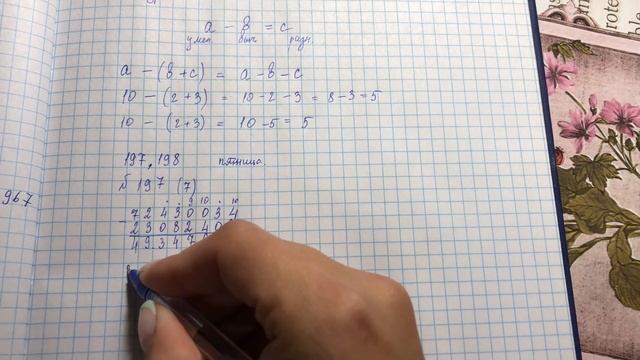 a - в = c
умен. выч. разн.
a - (в+c) = a-в-c
10 - (2+3) = 10-2-3 = 8-3=5
10 - (2+3) = 10-5= 5
197, 198 пятница.
967
б 197 (7)
9 10 10
- 7 2 4 3 0 0 3 4
2 3 0 8 2 4 0
4 9 3 4 7